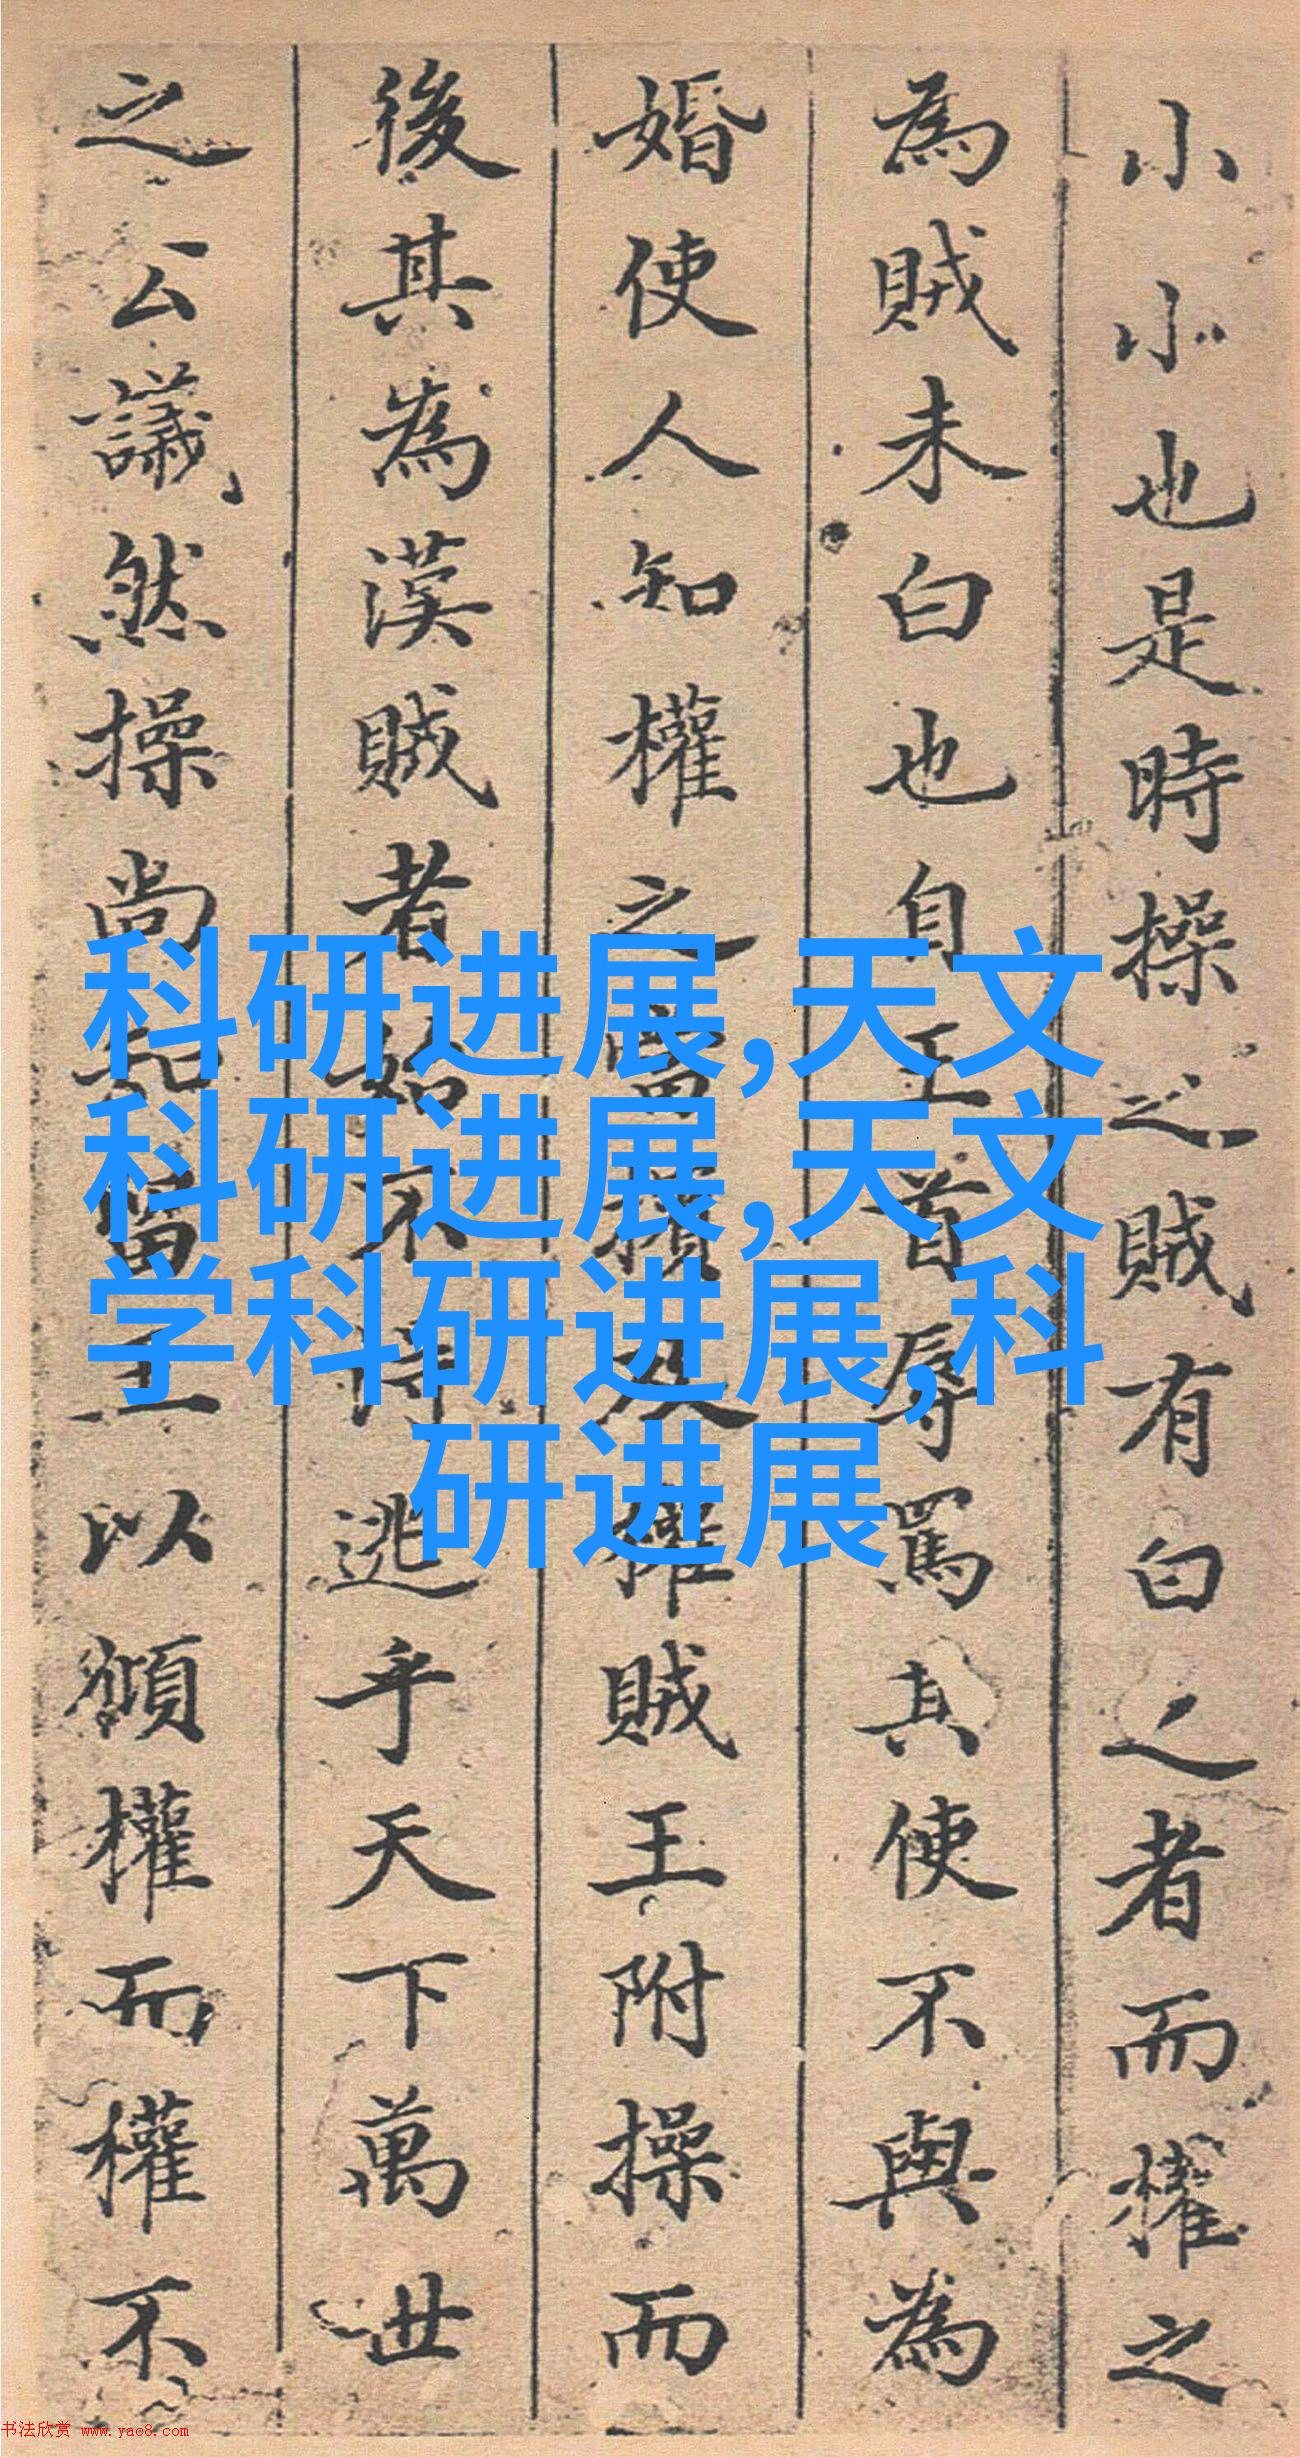 小小也是時操之賊有白之者而權之
為賊未白也自王首辱罵其使不與為
婚使人知權之權賊王附操而
後其為漢賊者不逃乎天下萬世
之公議然操尚留以權而權不
科研进展,天文
科研进展,天文
学科研进展,科
研进展
书法欣赏 www.yac8.com